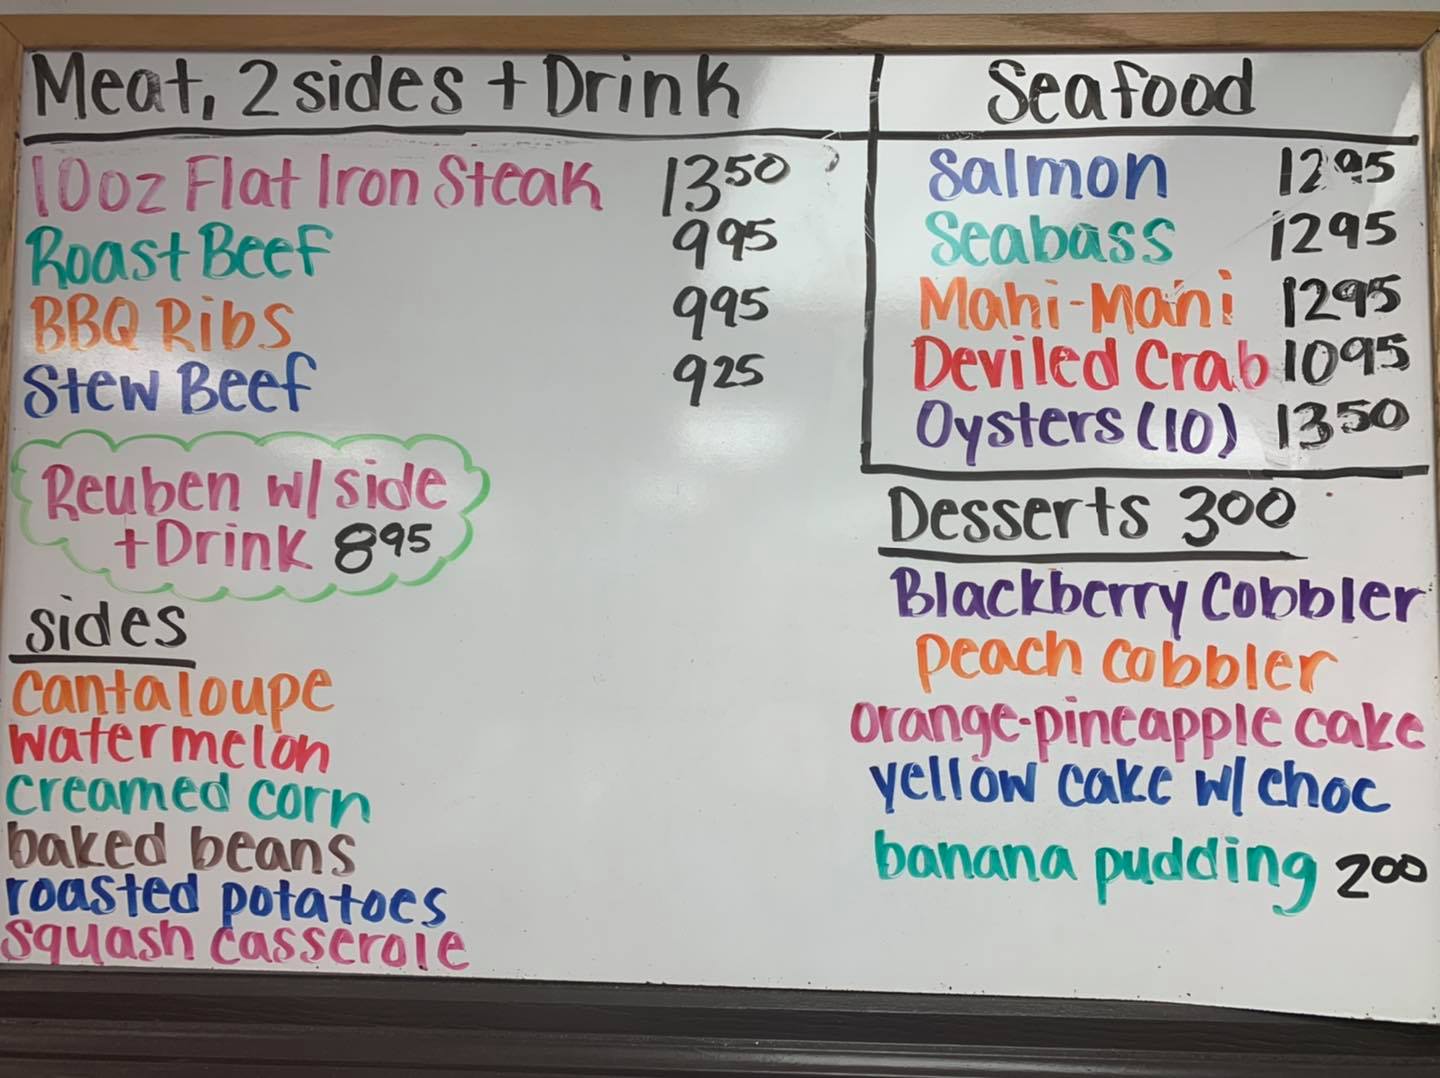 Meat, 2 sides + Drink
10oz Flat Iron Steak 13 50
Roast Beef 9 95
BBQ Ribs 9 95
Stew Beef 9 25
Reuben w/ side
+ Drink 8 95
sides
cantaloupe
watermelon
creamed corn
baked beans
roasted potatoes
squash casserole
Seafood
Salmon 12 95
Seabass 12 95
Mahi-Mahi 12 95
Deviled Crab 10 95
Oysters (10) 13 50
Desserts 3 00
Blackberry Cobbler
peach cobbler
orange-pineapple cake
yellow cake w/ choc
banana pudding 2 00